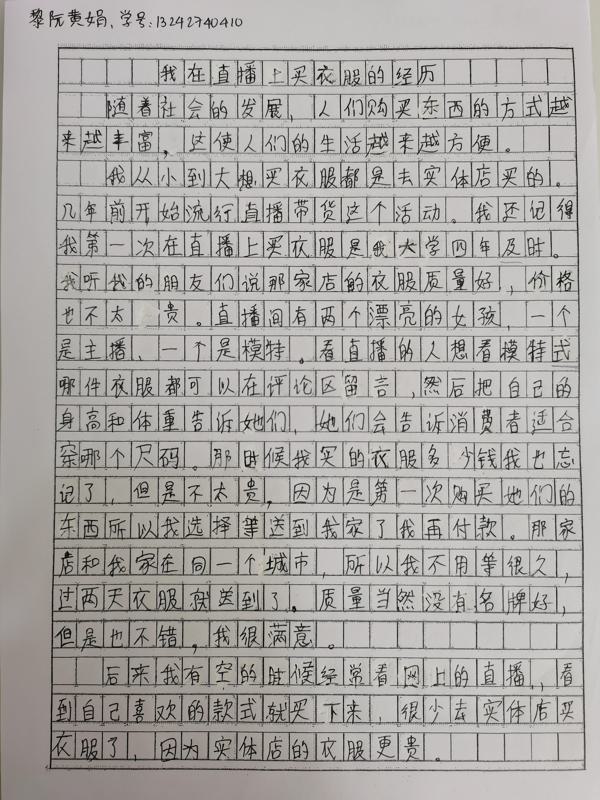 黎阮黄娟，学号：13242740410
我在直播上买衣服的经历
随着社会的发展，人们购买东西的方式越
来越丰富，这使人们的生活越来越方便。
我从小到大想买衣服都是去实体店买的。
几年前开始流行直播带货这个活动。我还记得
我第一次在直播上买衣服是我大学四年及时。
我听我的朋友们说那家店的衣服质量好，价格
也不太贵。直播间有两个漂亮的女孩，一个
是主播、一个是模特。看直播的人想看模特式
哪件衣服都可以在评论区留言，然后把自己的
身高和体重告诉她们，她们会告诉消费者适合
穿哪个尺码。那时候我买的衣服多少钱我也忘
记了，但是不太贵，因为是第一次购买她们的
东西所以我选择等送到我家了我再付款。那家
店和我家在同一个城市，所以我不用等很久，
过两天衣服就送到了。质量当然没有名牌好，
但是也不错，我很满意。
后来我有空的时候经常看网上的直播，看
到自己喜欢的款式就买下来，很少去实体店买
衣服了，因为实体店的衣服更贵。